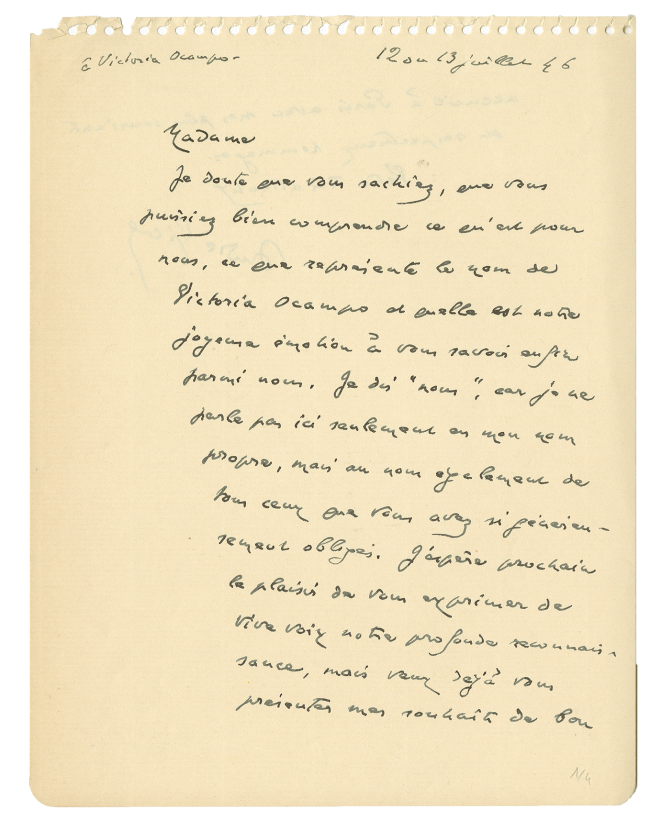 à Victoria Ocampo-
12 ou 13 juillet 46
Madame
Je doute que vous sachiez, que vous
puissiez bien comprendre ce qu'est pour
nous, ce que représente le nom de
Victoria Ocampo et quelle est notre
joyeuse émotion à vous savoir enfin
parmi nous. Je dis "nous", car je ne
parle pas ici seulement en mon nom
propre, mais au nom également de
tous ceux que vous avez si généreu-
sement obligés. J'espère prochain
le plaisir de vous exprimer de
vive voix notre profonde reconnais-
sance, mais veux déjà vous
présenter mes souhaits de bon
N4